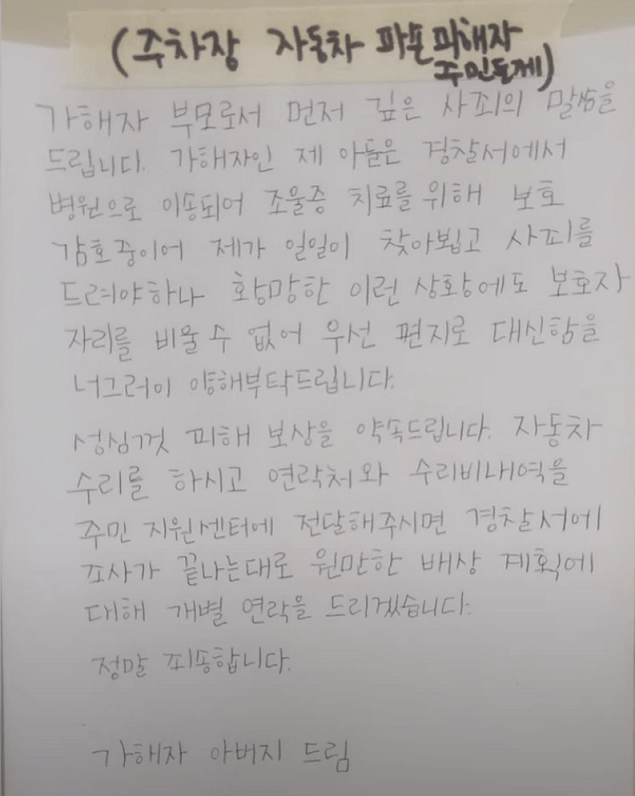 (주차장 자동차 파손피해자
주민들께)
가해자 부모로서 먼저 깊은 사죄의 말씀을
드립니다. 가해자인 제 아들은 경찰서에서
병원으로 이송되어 조울증 치료를 위해 보호
감호중이어 제가 일일이 찾아뵙고 사죄를
드려야하나 황망한 이런 상황에도 보호자
자리를 비울 수 없어 우선 편지로 대신함을
너그러이 양해부탁드립니다.
성심껏 피해 보상을 약속드립니다. 자동차
수리를 하시고 연락처와 수리비내역을
주민 지원센터에 전달해주시면 경찰서에
조사가 끝나는대로 원만한 배상 계획에
대해 개별 연락을 드리겠습니다.
정말 죄송합니다.
가해자 아버지 드림